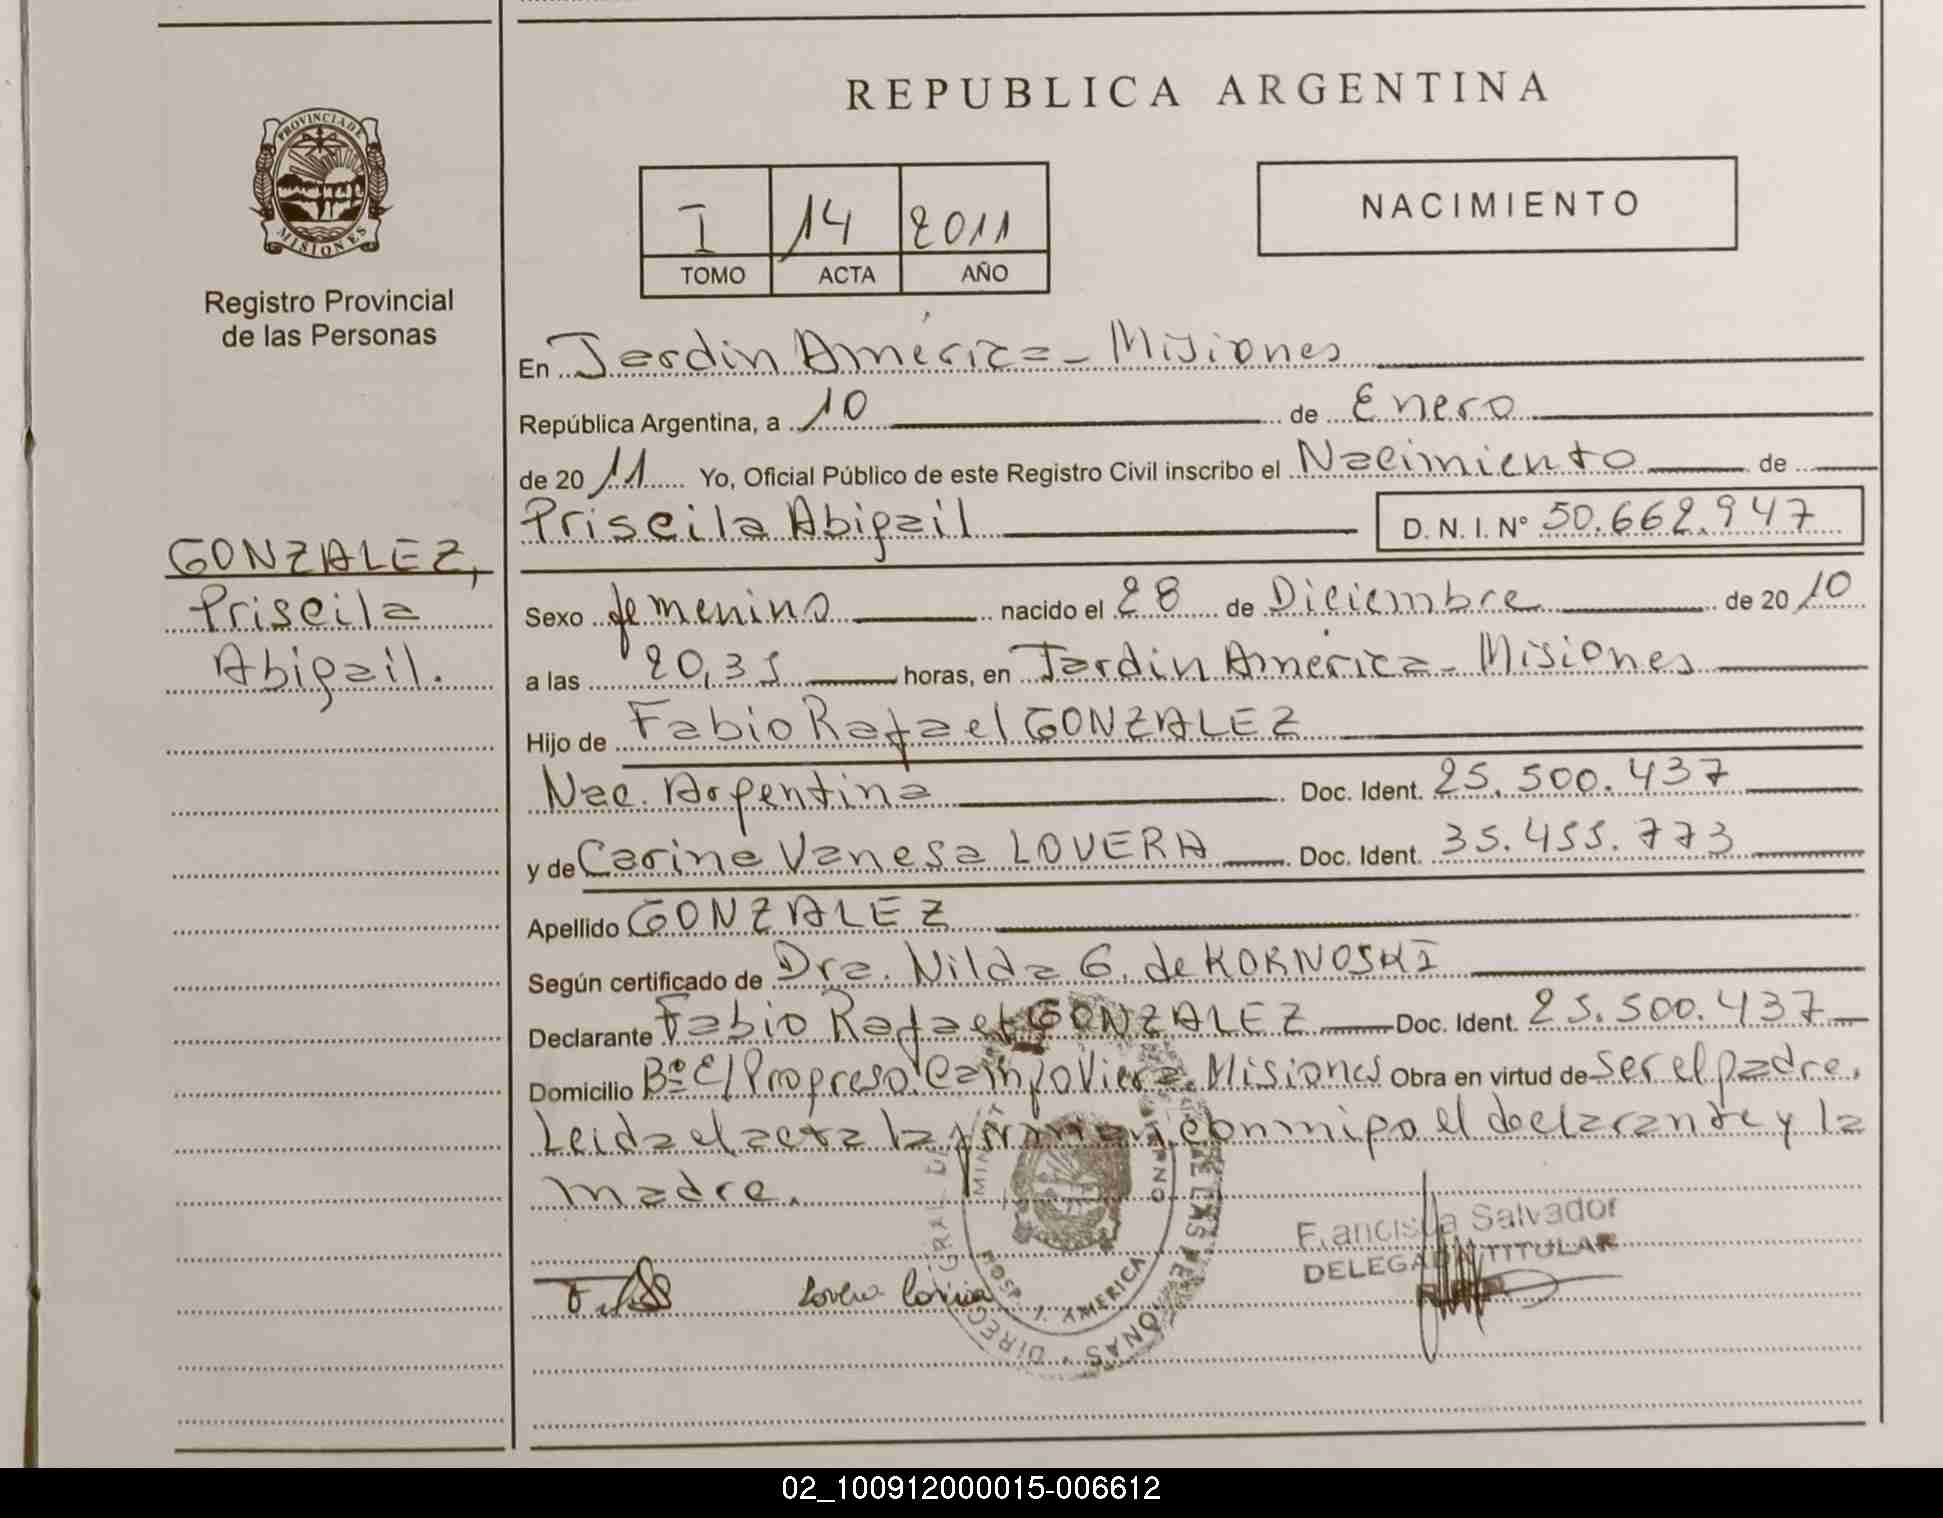 REPUBLICA ARGENTINA
PROVINCIA DE
MISIONES
Registro Provincial
de las Personas
I 14 2011
TOMO ACTA AÑO
NACIMIENTO
En Jardin América - Misiones
República Argentina, a 10 de Enero
de 20 11 Yo, Oficial Público de este Registro Civil inscribo el Nacimiento de
Priscila Abigail D. N. I. Nº 50.662.947
GONZALEZ,
Priscila
Abigail.
Sexo femenino nacido el 28 de Diciembre de 20 10
a las 20,35 horas, en Jardin América - Misiones
Hijo de Fabio Rafael GONZALEZ
Nac. Argentina Doc. Ident. 25.500.437
y de Carina Vanesa LOVERA Doc. Ident. 35.455.773
Apellido GONZALEZ
Según certificado de Dra. Nilda G. de KORNOSKI
Declarante Fabio Rafael GONZALEZ Doc. Ident. 25.500.437
Domicilio Bº El Progreso. Campo Viera, Misiones Obra en virtud de ser el padre.
Leida el acta la firman conmigo el declarante y la
madre.
Salvador
DELEGADA TITULAR
Lovera Carina
HOSP. J. AMERICA
02_100912000015-006612